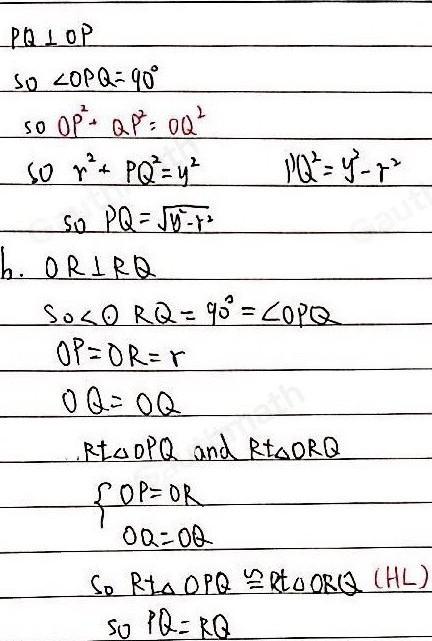 PQ⊥OP
so ∠OPQ=90°
so OP²+ QP²= OQ²
so r²+ PQ²=y² PQ²=y²-r²
so PQ=√y²-r²
b. OR⊥RQ
So<O RQ=90°=∠OPQ
OP=OR=r
OQ=OQ
Rt△OPQ and Rt△ORQ
{ OP=OR
OQ=OQ
So Rt△ OPQ ≌Rt△ORQ (HL)
so PQ=RQ